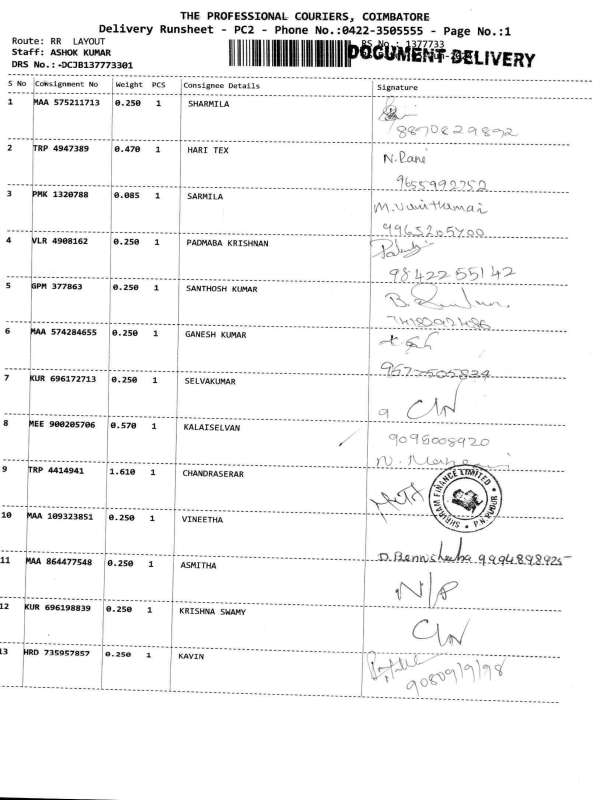 THE PROFESSIONAL COURIERS, COIMBATORE
Delivery Runsheet - PC2 - Phone No.:0422-3505555 - Page No.:1
Route: RR LAYOUT
Staff: ASHOK KUMAR
DRS No.:-DCJB137773301
RS No.: 1377733
DOCUMENT DELIVERY
S No Consignment No Weight PCS Consignee Details Signature
1 MAA 575211713 0.250 1 SHARMILA
8870829892
2 TRP 4947389 0.470 1 HARI TEX N. Rani
9655992752
3 PMK 1320788 0.085 1 SARMILA
9965205400
4 VLR 4908162 0.250 1 PADMABA KRISHNAN
9842255142
5 GPM 377863 0.250 1 SANTHOSH KUMAR
6 MAA 574284655 0.250 1 GANESH KUMAR
7 KUR 696172713 0.250 1 SELVAKUMAR
8 MEE 900205706 0.570 1 KALAISELVAN 9095008920
9 TRP 4414941 1.610 1 CHANDRASERAR
SHRIRAM FINANCE LIMITED
10 MAA 109323851 0.250 1 VINEETHA
9994898925
11 MAA 864477548 0.250 1 ASMITHA
12 KUR 696198839 0.250 1 KRISHNA SWAMY
13 HRD 735957857 0.250 1 KAVIN